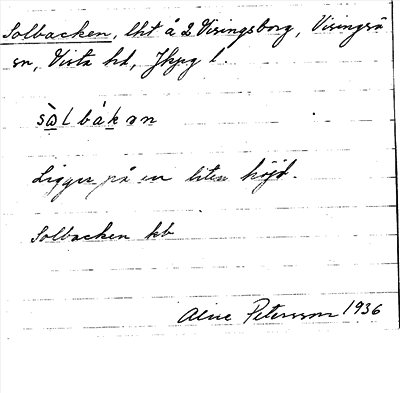 Solbacken, lht å 2 Visingsborg, Visingsö
sn, Vista hd, Jkpg l.
sòlbákan
Ligger på en liten höjd.
Solbacken kb
Aline Petersson 1936